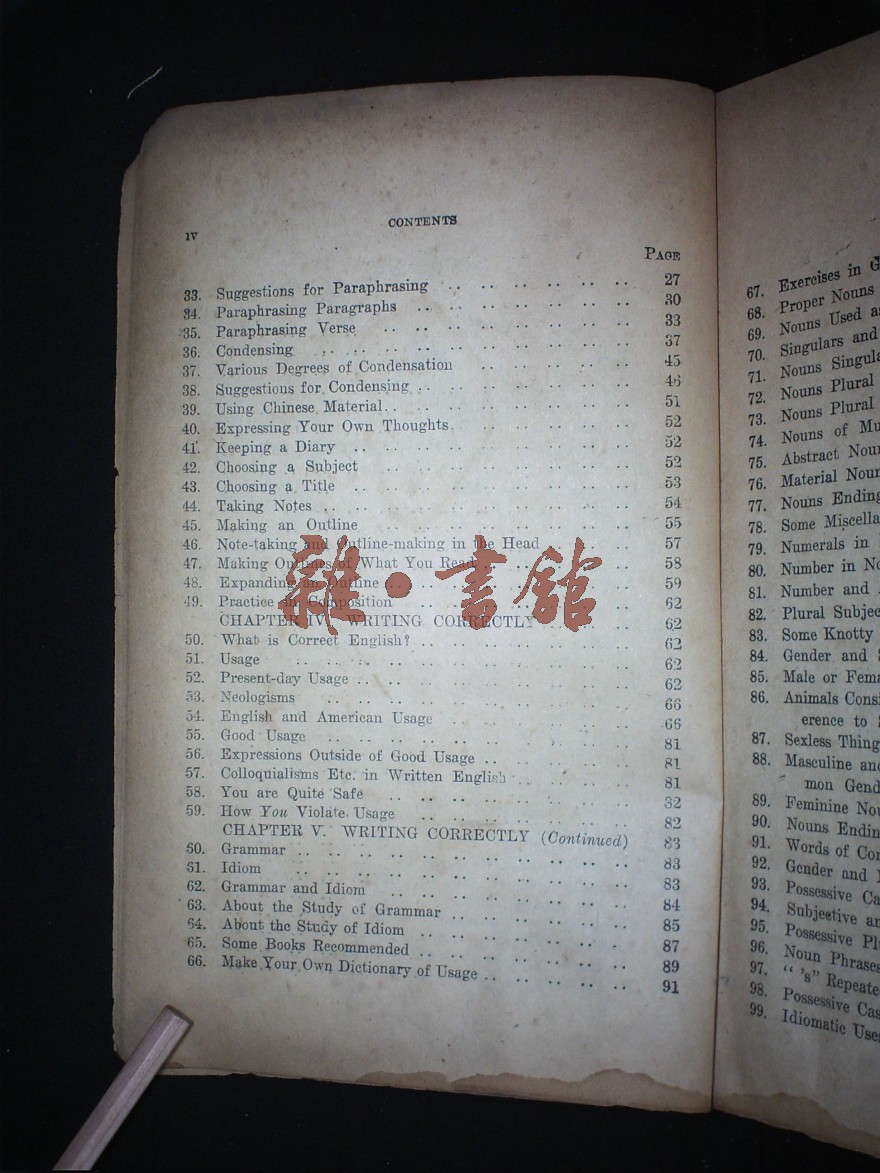 CONTENTS
iv
PAGE
33. Suggestions for Paraphrasing 27
34. Paraphrasing Paragraphs 30
35. Paraphrasing Verse 33
36. Condensing 37
37. Various Degrees of Condensation 45
38. Suggestions for Condensing 46
39. Using Chinese Material 51
40. Expressing Your Own Thoughts 52
41. Keeping a Diary 52
42. Choosing a Subject 52
43. Choosing a Title 53
44. Taking Notes 54
45. Making an Outline 55
46. Note-taking and Outline-making in the Head 57
47. Making Outlines of What You Read 58
48. Expanding an Outline 59
49. Practice in Composition 62
CHAPTER IV. WRITING CORRECTLY 62
50. What is Correct English? 62
51. Usage 62
52. Present-day Usage 62
53. Neologisms 66
54. English and American Usage 66
55. Good Usage 81
56. Expressions Outside of Good Usage 81
57. Colloquialisms Etc. in Written English 81
58. You are Quite Safe 82
59. How You Violate Usage 82
CHAPTER V. WRITING CORRECTLY (Continued) 83
60. Grammar 83
61. Idiom 83
62. Grammar and Idiom 84
63. About the Study of Grammar 85
64. About the Study of Idiom 87
65. Some Books Recommended 89
66. Make Your Own Dictionary of Usage 91
雜·書館
67. Exercises in
68. Proper Nouns
69. Nouns Used
70. Singulars and
71. Nouns
72. Nouns Plural
73. Nouns Plural
74. Nouns of
75. Abstract
76. Material
77. Nouns
78. Some
79. Numerals in
80. Number in
81. Number and
82. Plural
83. Some Knotty
84. Gender and
85. Male or
86. Animals
erence to
87. Sexless
88. Masculine
mon
89. Feminine
90. Nouns
91. Words of
92. Gender and
93. Possessive
94.
95. Possessive
96. Noun Phrases
97. "'s"
98. Possessive
99. Idiomatic